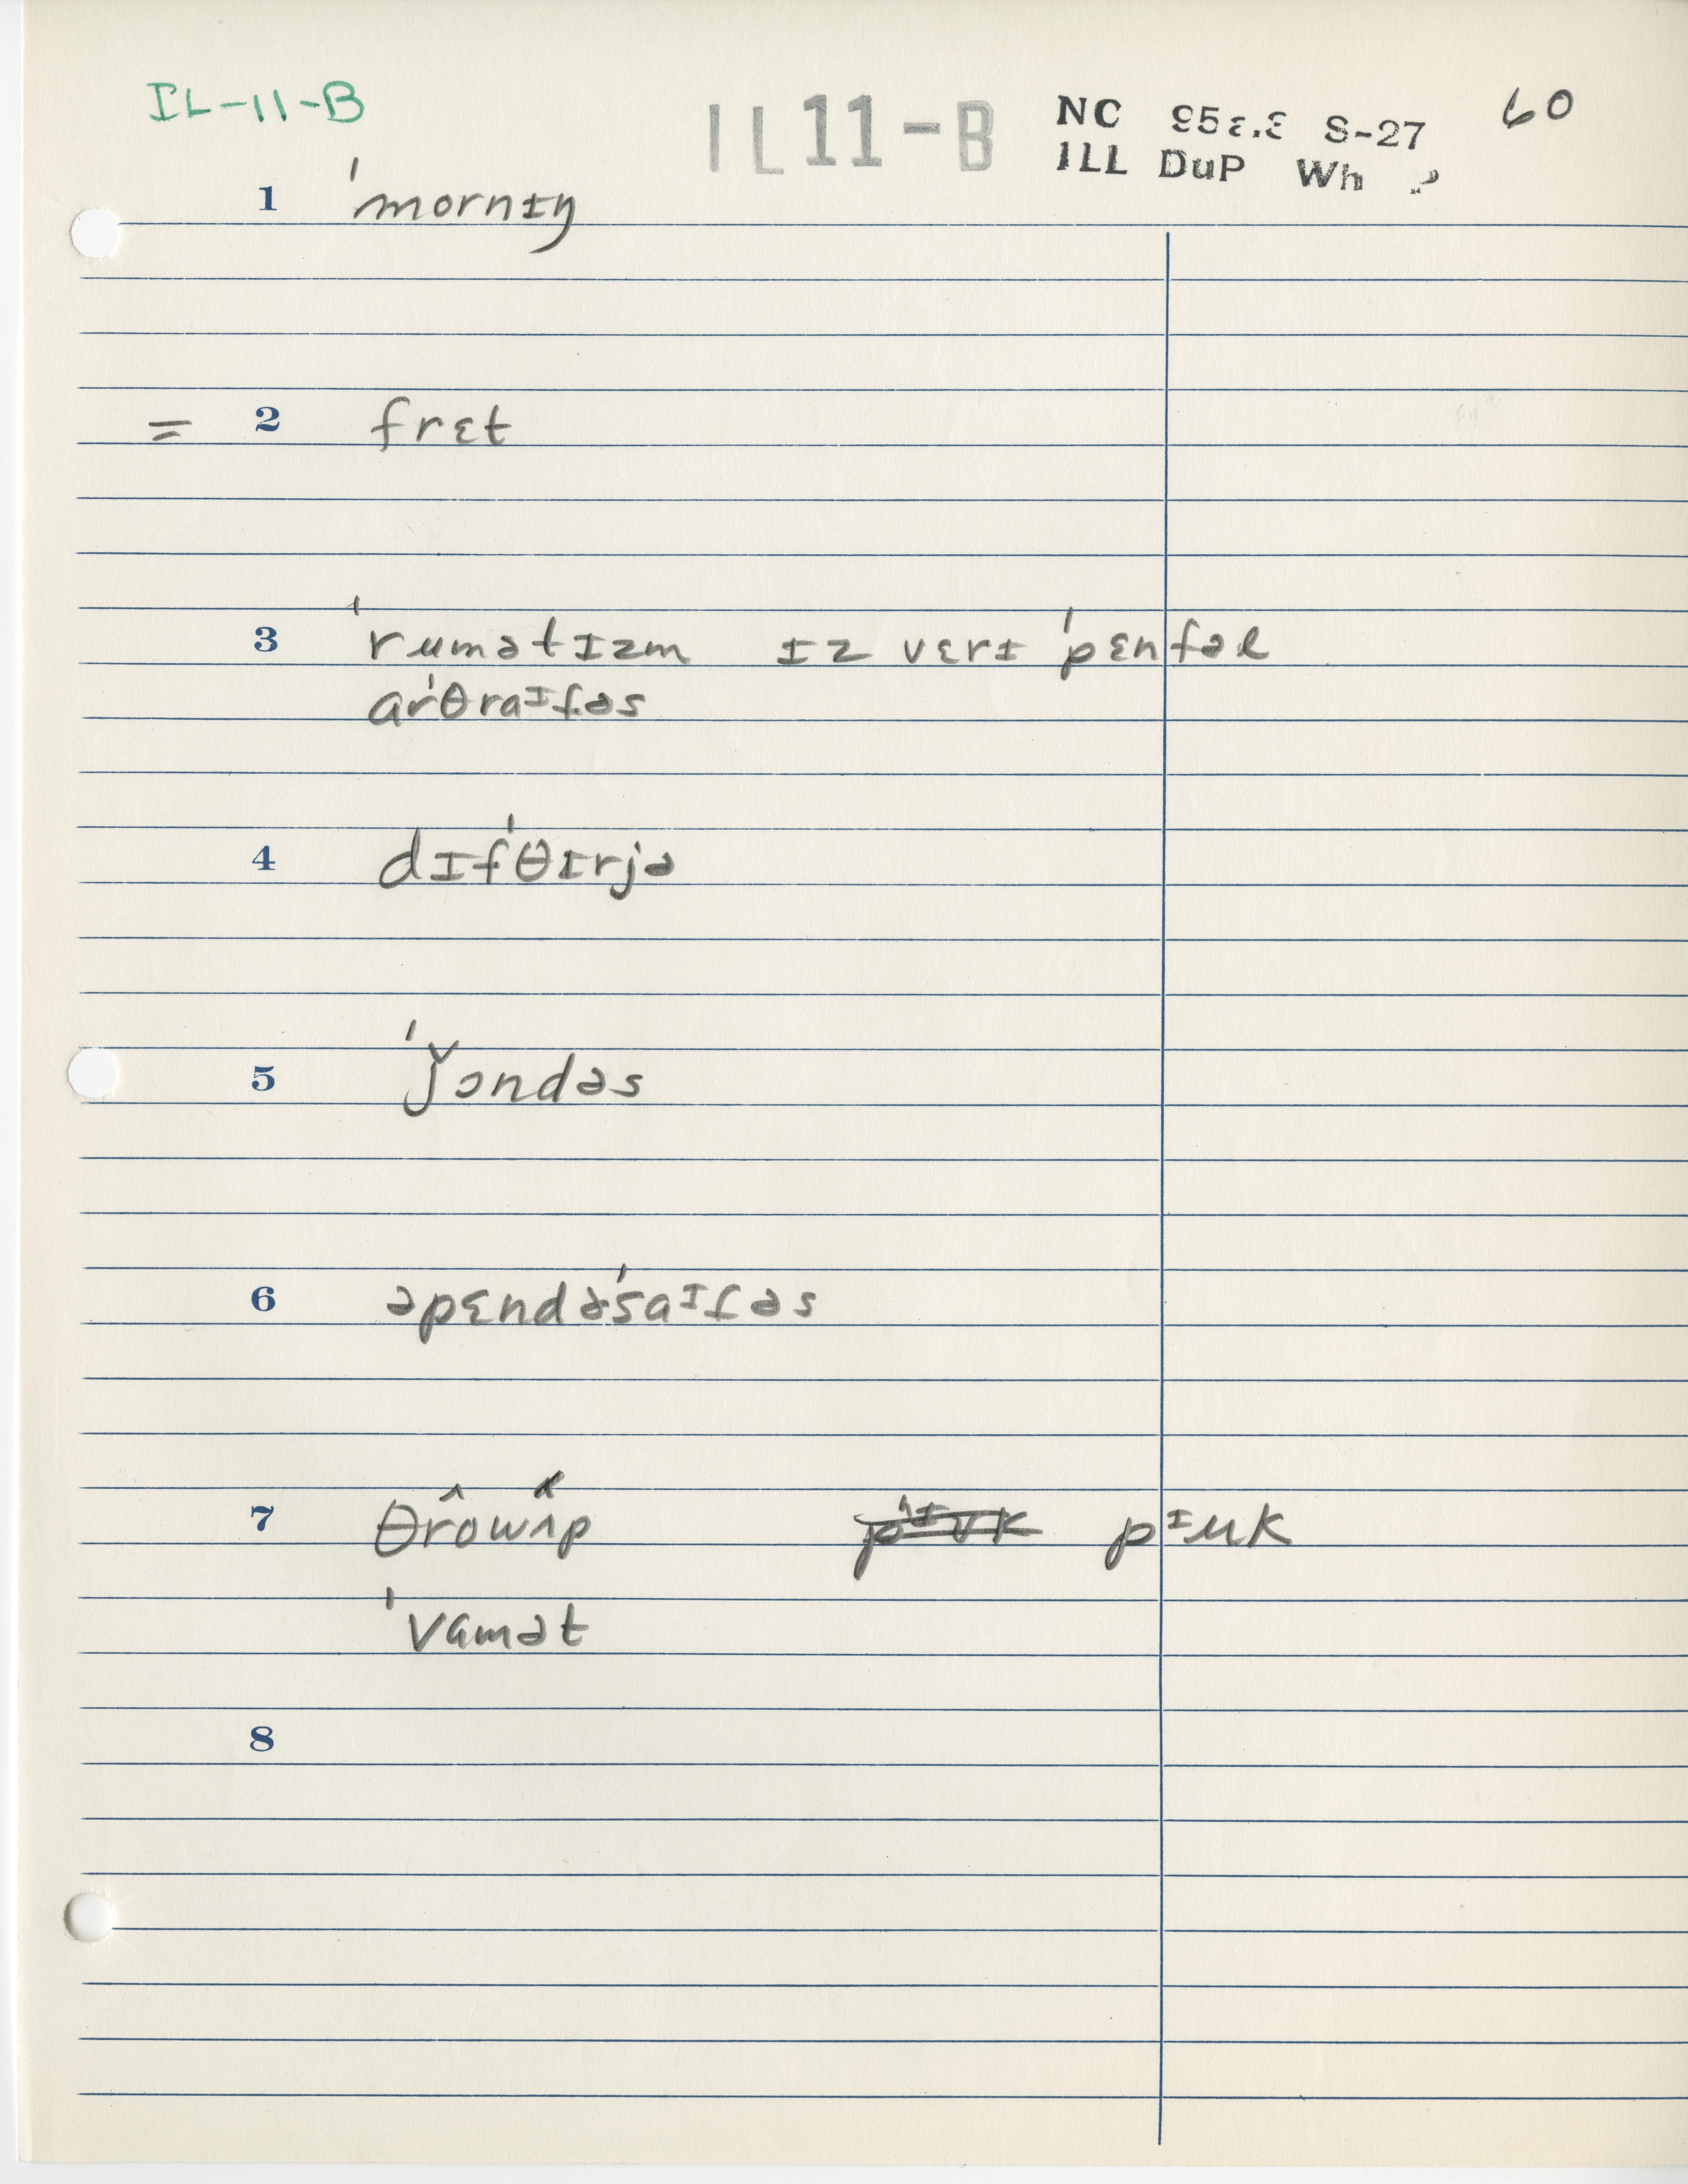 IL-11-B
IL11-B
NC 95ε.ε S-27
ILL DuP Wh
60
1 ˈmornɪŋ
= 2 frɛt
3 ˈrumətɪzm ɪz vɛrɪ ˈpɛnfəl
arˈθraɪfəs
4 dɪfˈθɪrjə
5 ˈǰɔndəs
6 əpɛndəˈsaɪfəs
7 θrô wʌ̂p pɪuk
ˈvamət
8